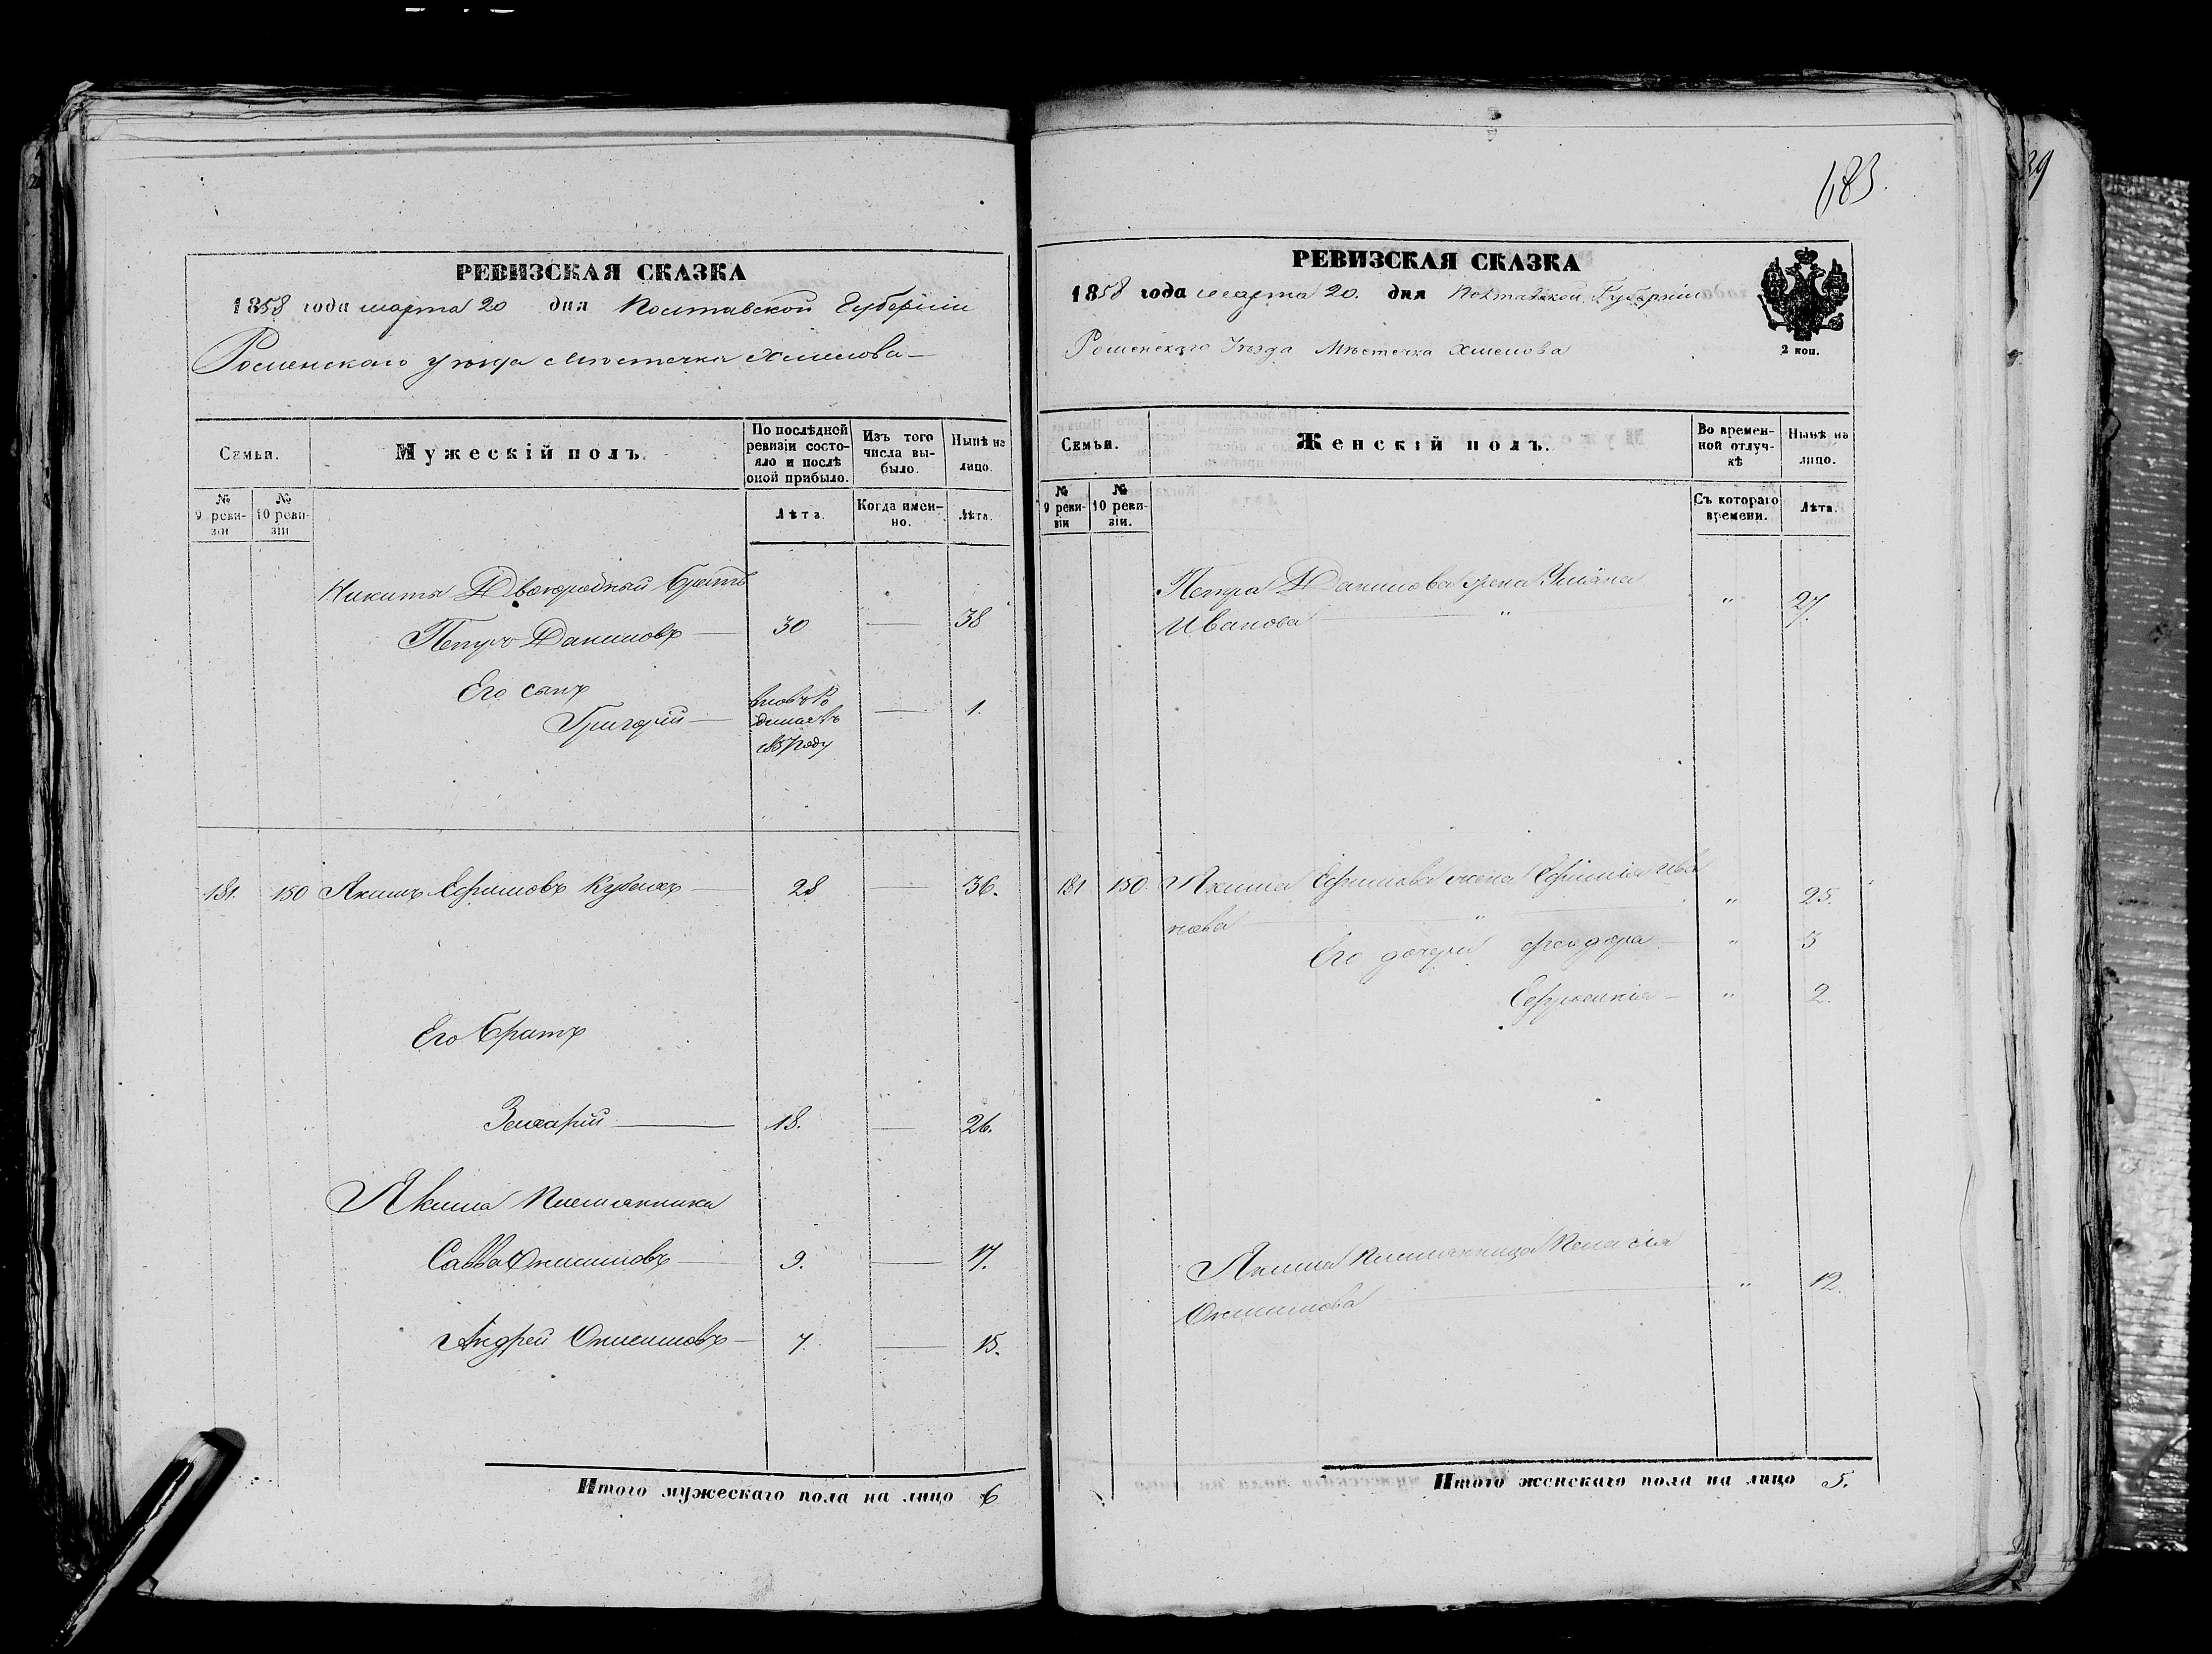 183.
39
РЕВИЗСКАЯ СКАЗКА
1858 года марта 20 дня Полтавской Губерніи
Роменскаго уѣзда мѣстечка Хмелова
Семьи.
Мужескій полъ.
По послѣдней ревизіи состояло и послѣ оной прибыло.
Изъ того числа выбыло.
Нынѣ на лицо.
№ 9 ревизіи
№ 10 ревизіи
Лѣта.
Когда именно.
Лѣта.
Никиты Двоюродный братъ
Петръ Даниловъ 30 — 38
Его сынъ
Григорій вновь родился въ 1857 году — 1.
181. 150 Якимъ Ефимовъ 28 — 36.
Его братъ
Захарій 18. — 26.
Якима племянники
Савва Онисимовъ 9. — 17.
Андрей Онисимовъ 7. — 15.
Итого мужескаго пола на лицо 6
РЕВИЗСКАЯ СКАЗКА
1858 года марта 20. дня Полтавской Губерніи
Роменскаго Уѣзда Мѣстечка Хмелова
2 коп.
Семьи.
Женскій полъ.
Во временной отлучкѣ
Нынѣ на лицо.
№ 9 ревизіи
№ 10 ревизіи.
Съ котораго времени.
Лѣта.
Петра Данилова жена Уліана
Иванова " " 27.
181 150. Якима Ефимова жена Ефимія Ива
нова " " 25.
Его дочери Феодора " 3
" 2.
Якима племянница Пелагія
Онисимова " 12.
Итого женскаго пола на лицо 5.